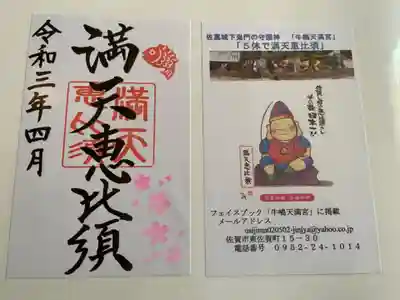 令和三年四月
満天恵比須
満天
恵比須
佐嘉城下鬼門の守護神 「牛嶋天満宮」
「5体で満天恵比須」
満天恵比須
フェイスブック「牛嶋天満宮」に掲載
メールアドレス
佐賀市東佐賀町15-30
電話番号 0952-24-1014